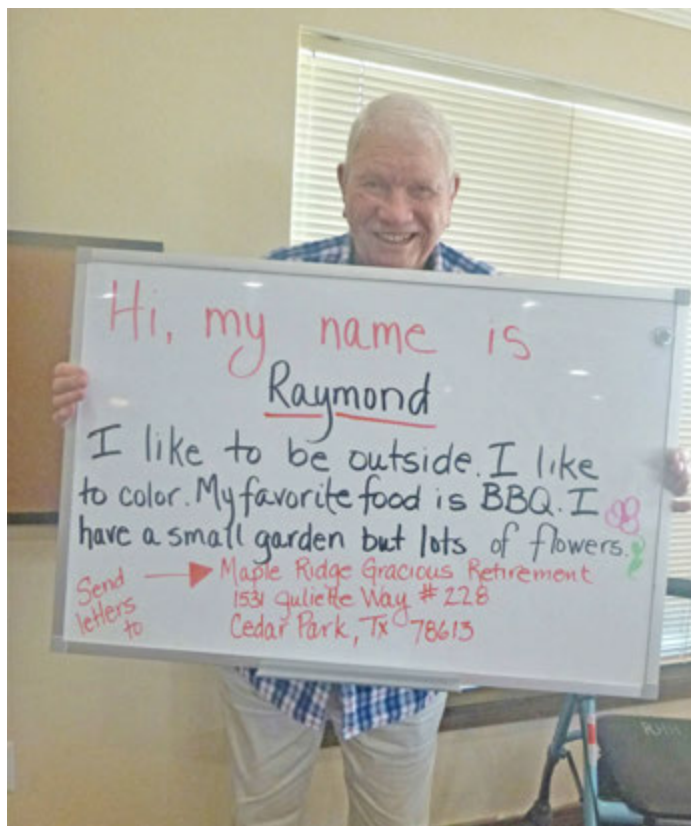 Hi, my name is
Raymond
I like to be outside. I like
to color. My favorite food is BBQ. I
have a small garden but lots of flowers.
Send
letters
to
Maple Ridge Gracious Retirement
1531 Juliette Way #228
Cedar Park, Tx 78613